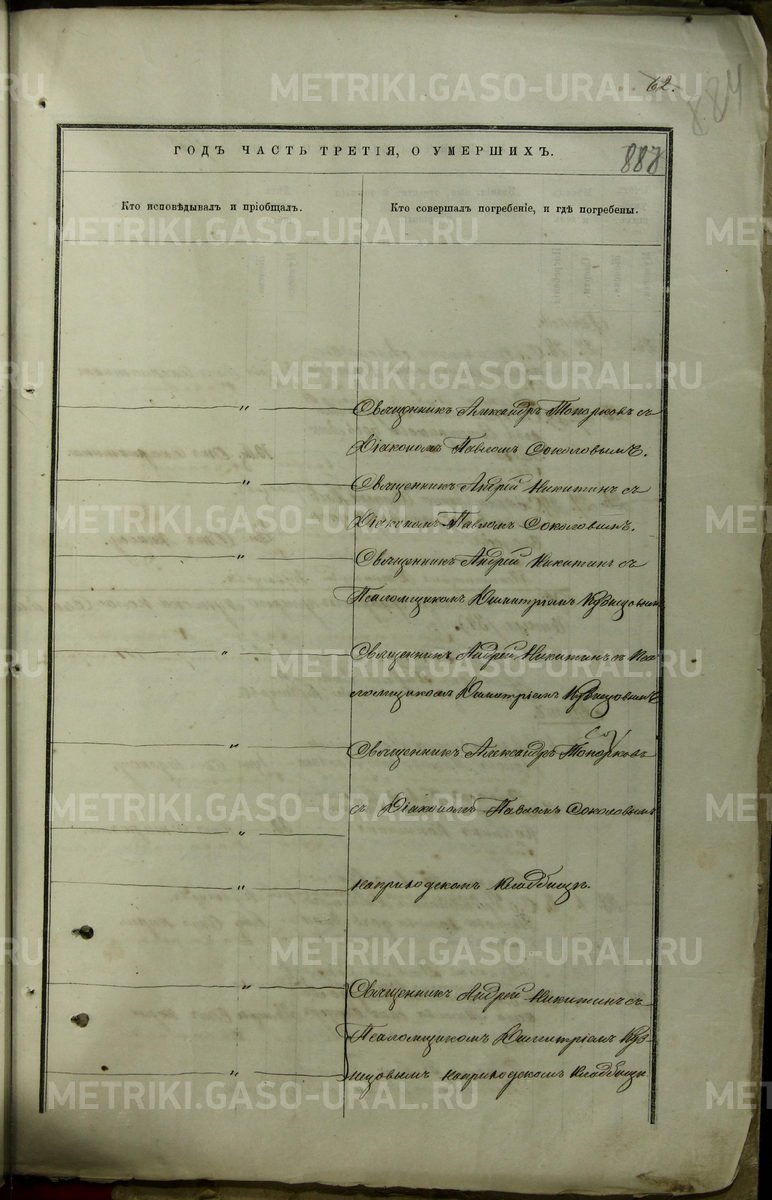 62.
884
ГОДЪ ЧАСТЬ ТРЕТІЯ, О УМЕРШИХЪ.
Кто исповѣдывалъ и пріобщалъ.
Кто совершалъ погребеніе, и гдѣ погребены.
Священникъ Александръ Топорковъ съ
Діакономъ Павломъ Соколовымъ.
Священникъ Андрей Никитинъ съ
Діакономъ Павломъ Соколовымъ.
Священникъ Андрей Никитинъ съ
Псаломщикомъ Димитріемъ Кузнецовымъ
Священникъ Андрей Никитинъ съ Пса
ломщикомъ Димитріемъ Кузнецовымъ
Священникъ Александръ Топорковъ
съ Діакономъ Павломъ Соколовымъ
наприходскомъ кладбищѣ.
Священникъ Андрей Никитинъ съ
Псаломщикомъ Димитріемъ Куз-
нецовымъ наприходскомъ кладбищѣ
METRIKI.GASO-URAL.RU